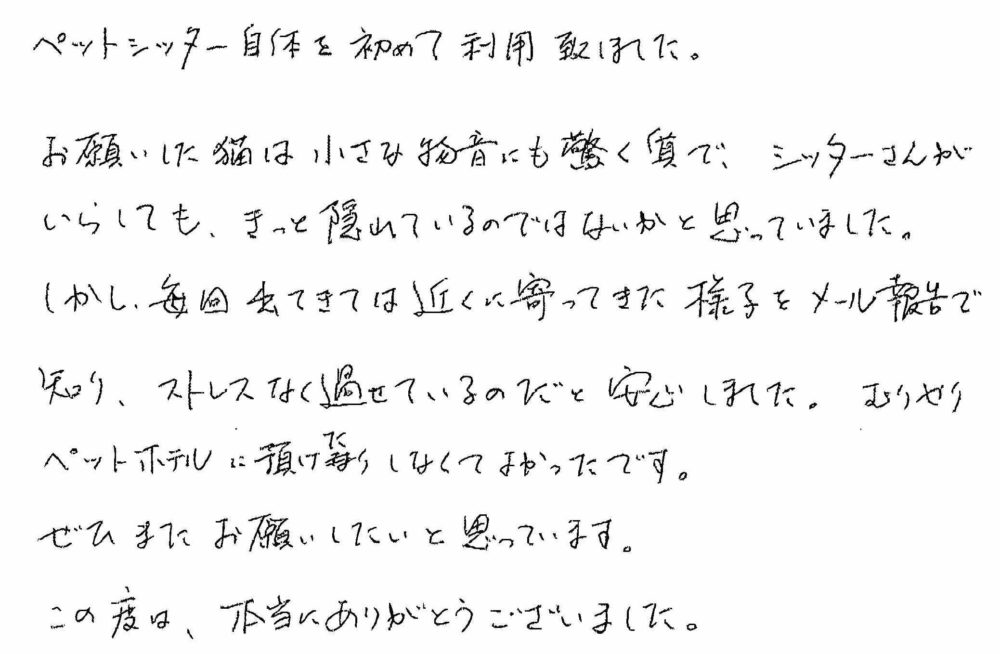 ペットシッター自体を初めて利用致しました。
お願いした猫は小さな物音にも驚く質で、シッターさんが
いらしても、きっと隠れているのではないかと思っていました。
しかし、毎回出てきては近くに寄ってきた様子をメール報告で
知り、ストレスなく過せているのだと安心しました。むりやり
ペットホテルに預けたりしなくてよかったです。
ぜひまたお願いしたいと思っています。
この度は、本当にありがとうございました。